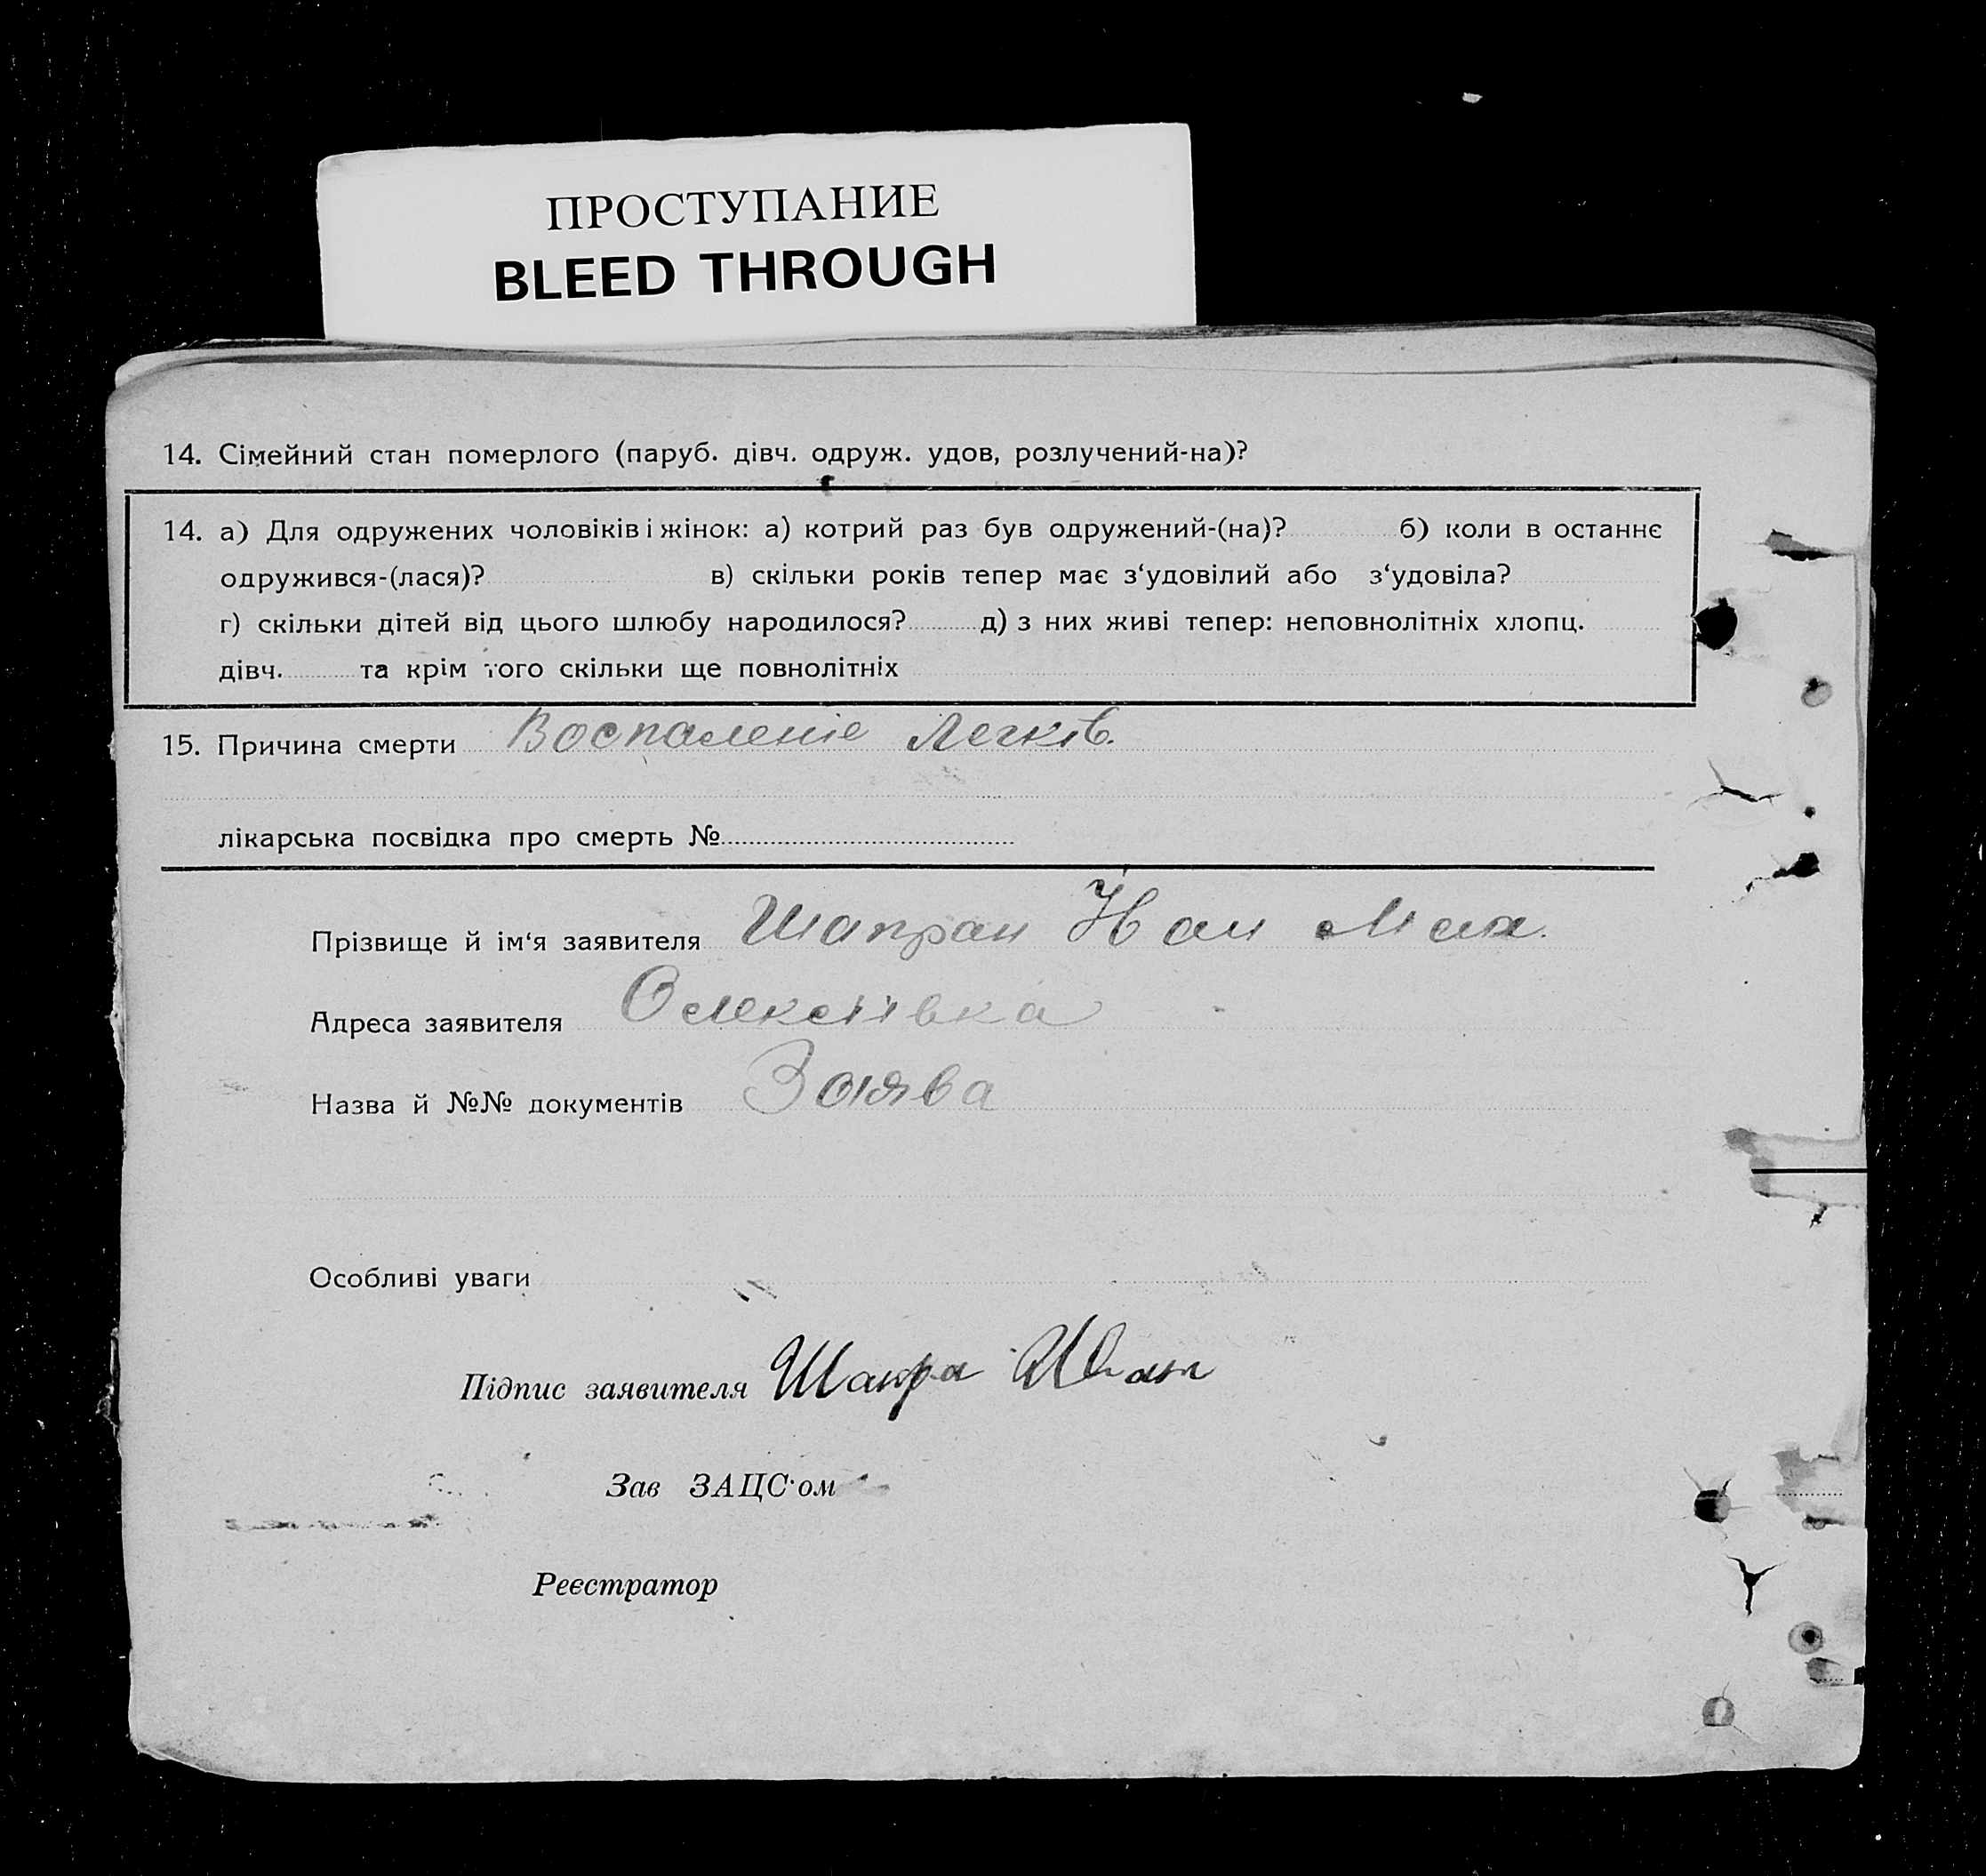 ПРОСТУПАНИЕ
BLEED THROUGH
14. Сімейний стан померлого (паруб. дівч. одруж. удов, розлучений-на)?
14. а) Для одружених чоловіків і жінок: а) котрий раз був одружений-(на)? б) коли в останнє
одружився-(лася)? в) скільки років тепер має з‘удовілий або з‘удовіла?
г) скільки дітей від цього шлюбу народилося? д) з них живі тепер: неповнолітніх хлопц.
дівч. та крім того скільки ще повнолітніх
15. Причина смерти Воспаленіе Легків.
лікарська посвідка про смерть №
Прізвище й ім‘я заявителя Шапран
Адреса заявителя Олексіївка
Назва й №№ документів Заява
Особливі уваги
Підпис заявителя Шапра Иван
Зав ЗАЦС‘ом
Реєстратор